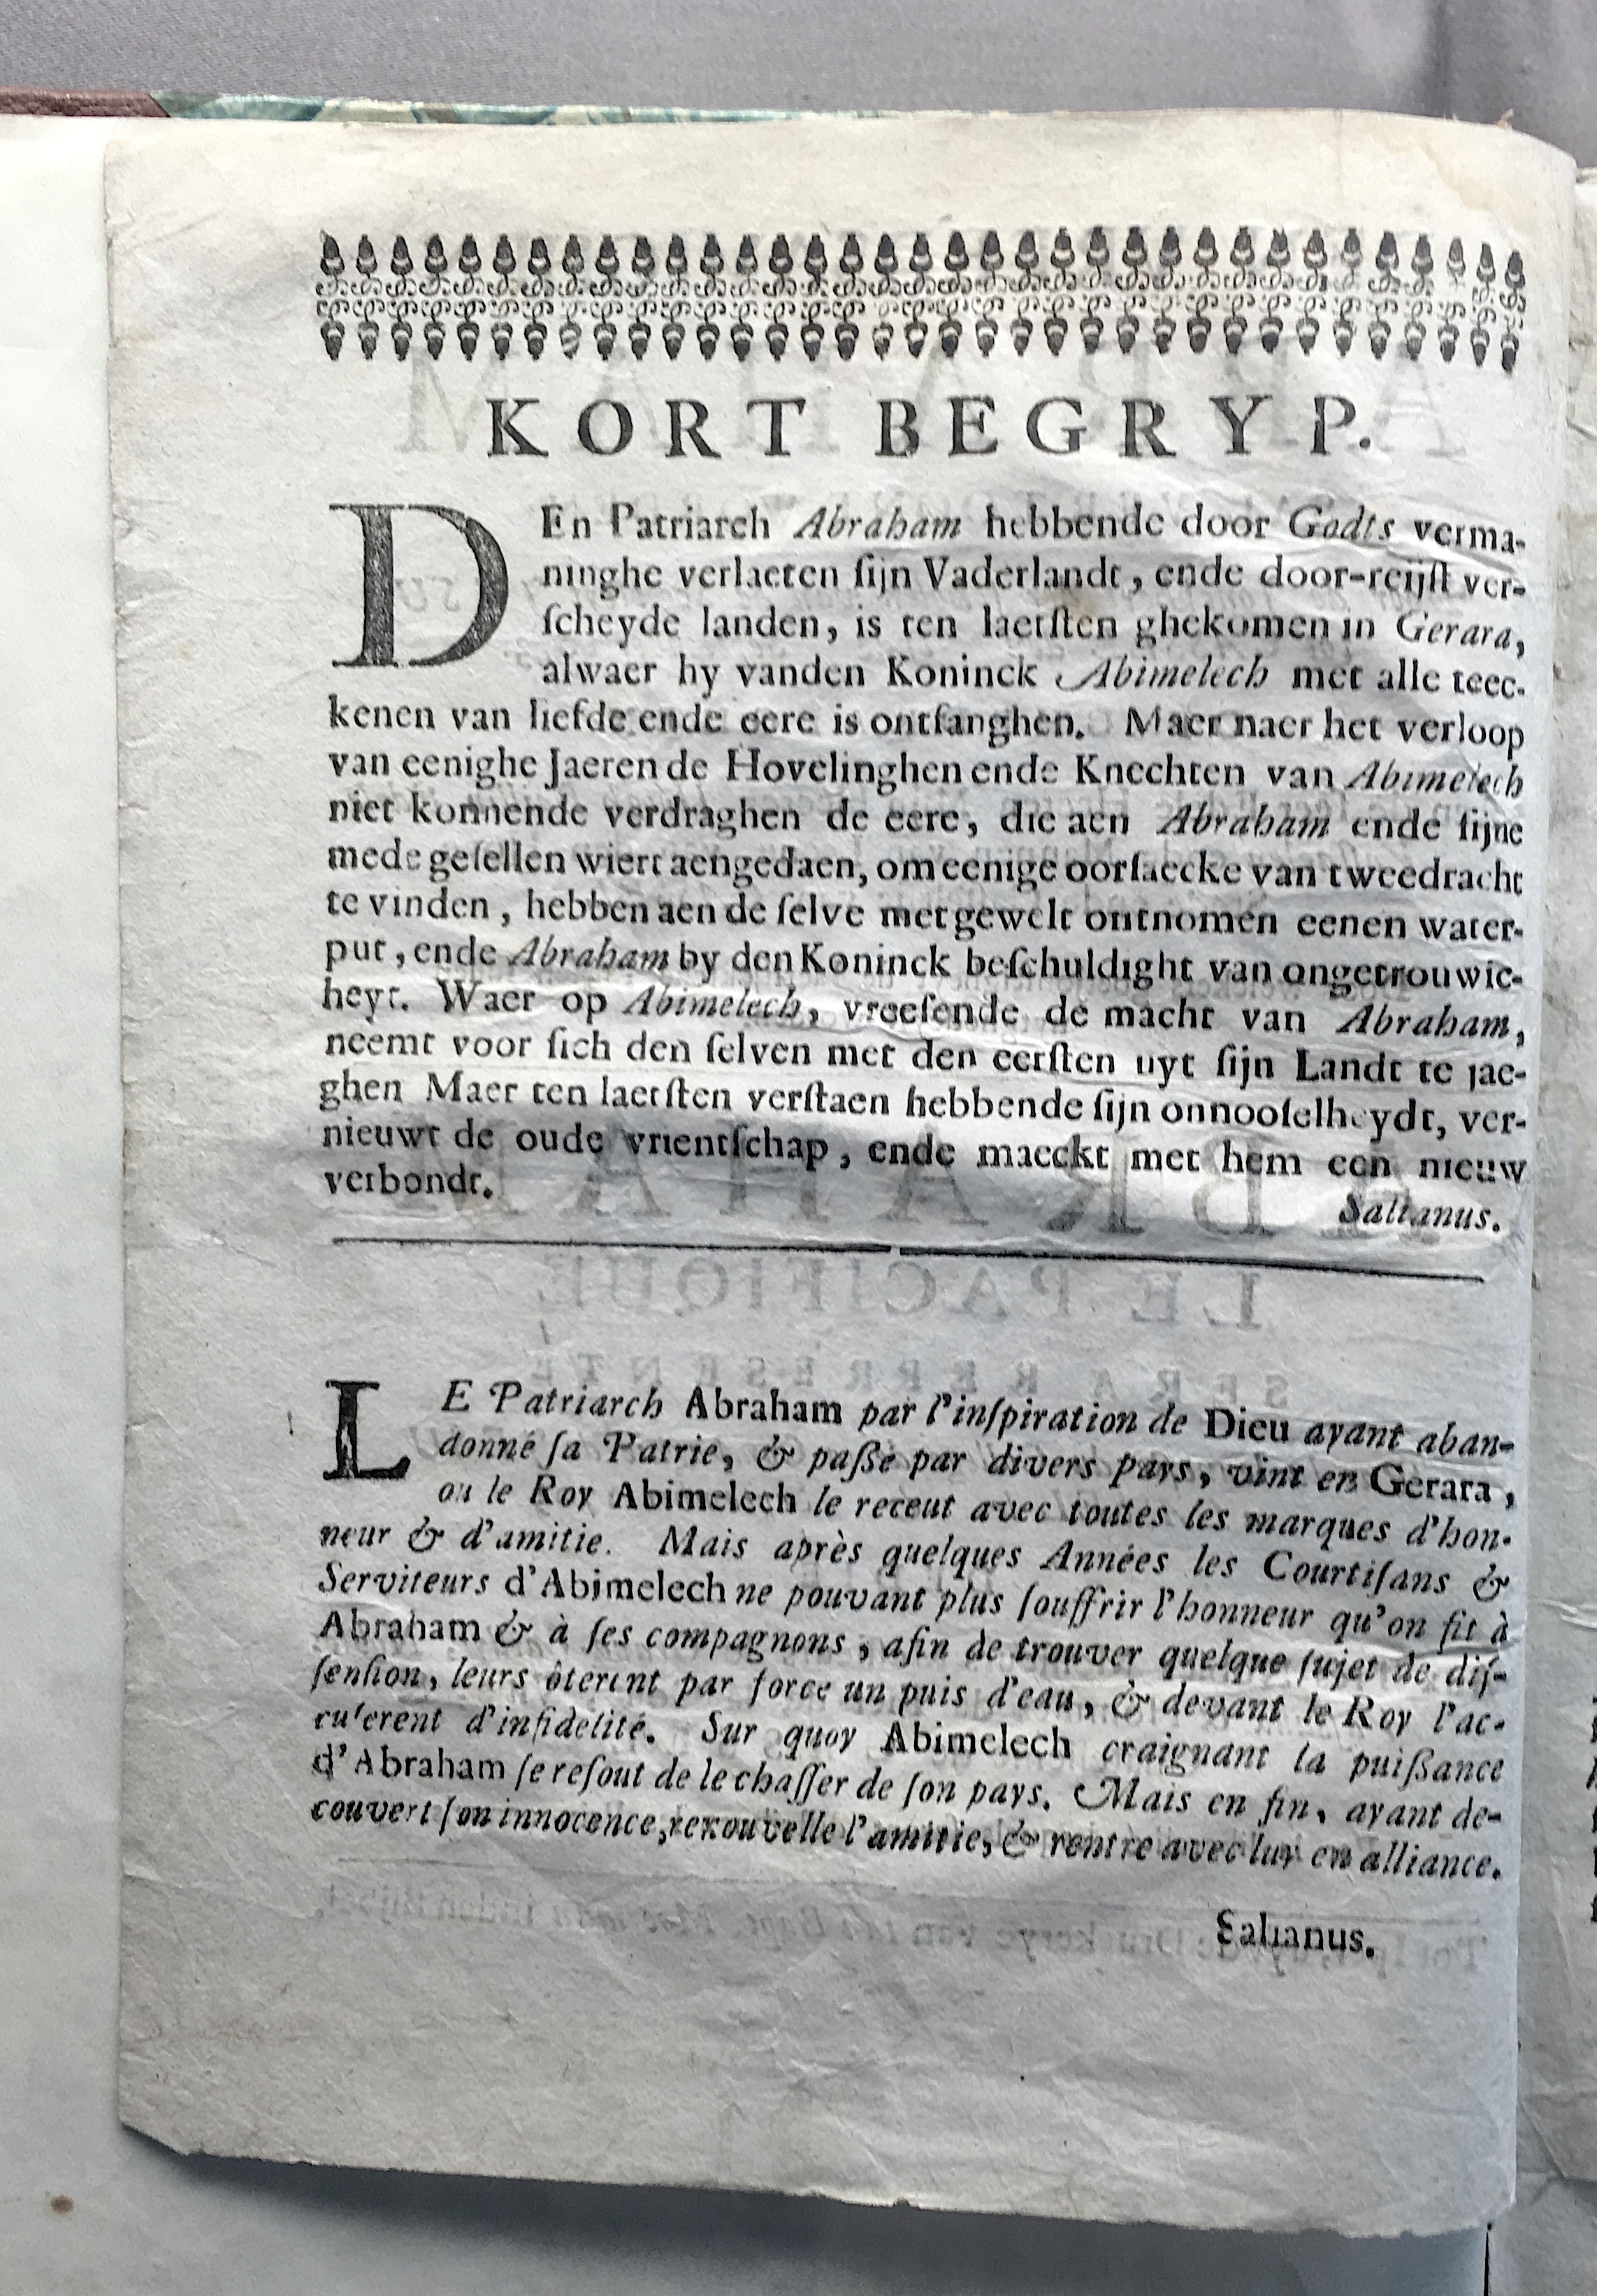 KORT BEGRYP.
DEn Patriarch Abraham hebbende door Godts verma-
ninghe verlaeten ſijn Vaderlandt, ende door-reijſt ver-
ſcheyde landen, is ten laetſten ghekomen in Gerara,
alwaer hy vanden Koninck Abimelech met alle teec-
kenen van liefde ende eere is ontfanghen. Maer naer het verloop
van eenighe Jaeren de Hovelinghen ende Knechten van Abimelech
niet konnende verdraghen de eere, die aen Abraham ende ſijne
mede geſellen wiert aengedaen, om eenige oorſaecke van tweedracht
te vinden, hebben aen de ſelve met gewelt ontnomen eenen water-
put, ende Abraham by den Koninck beſchuldight van ongetrouwic-
heyt. Waer op Abimelech, vreeſende de macht van Abraham,
neemt voor ſich den ſelven met den eerſten uyt ſijn Landt te jae-
ghen Maer ten laetſten verſtaen hebbende ſijn onnooſelheydt, ver-
nieuwt de oude vrientſchap, ende maeckt met hem een nieuw
verbondt.
Salianus.
LE Patriarch Abraham par l'inſpiration de Dieu ayant aban-
donné ſa Patrie, & paßé par divers pays, vint en Gerara,
ou le Roy Abimelech le receut avec toutes les marques d'hon-
neur & d'amitie. Mais après quelques Années les Courtiſans &
Serviteurs d'Abimelech ne pouvant plus ſouffrir l'honneur qu'on fit à
Abraham & à ſes compagnons, afin de trouver quelque ſujet de diſ-
ſenſion, leurs ôterent par force un puis d'eau, & devant le Roy l'ac-
cuſerent d'infidelité. Sur quoy Abimelech craignant la puißance
d'Abraham ſe reſout de le chaſſer de ſon pays. Mais en fin, ayant de-
couvert ſon innocence, renouvelle l'amitie, & rentre avec luy en alliance.
Salianus.